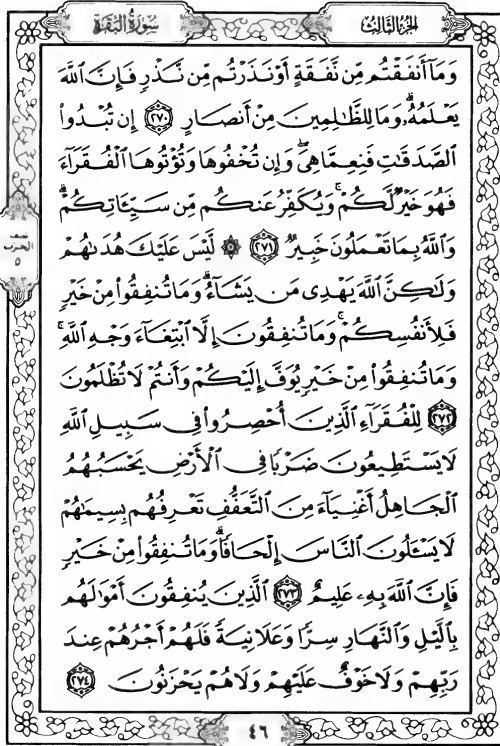 الجزء الثالث
سورة البقرة
وَمَآ أَنفَقْتُم مِّن نَّفَقَةٍ أَوْ نَذَرْتُم مِّن نَّذْرٍ فَإِنَّ ٱللَّهَ
يَعْلَمُهُۥ ۗ وَمَا لِلظَّـٰلِمِينَ مِنْ أَنصَارٍ ٢٧٠ إِن تُبْدُوا۟
ٱلصَّدَقَـٰتِ فَنِعِمَّا هِىَ ۖ وَإِن تُخْفُوهَا وَتُؤْتُوهَا ٱلْفُقَرَآءَ
فَهُوَ خَيْرٌ لَّكُمْ ۚ وَيُكَفِّرُ عَنكُم مِّن سَيِّـَٔاتِكُمْ ۗ
وَٱللَّهُ بِمَا تَعْمَلُونَ خَبِيرٌ ٢٧١ ۞ لَّيْسَ عَلَيْكَ هُدَىٰهُمْ
وَلَـٰكِنَّ ٱللَّهَ يَهْدِى مَن يَشَآءُ ۗ وَمَا تُنفِقُوا۟ مِنْ خَيْرٍ
فَلِأَنفُسِكُمْ ۚ وَمَا تُنفِقُونَ إِلَّا ٱبْتِغَآءَ وَجْهِ ٱللَّهِ ۚ
وَمَا تُنفِقُوا۟ مِنْ خَيْرٍ يُوَفَّ إِلَيْكُمْ وَأَنتُمْ لَا تُظْلَمُونَ
٢٧٢ لِلْفُقَرَآءِ ٱلَّذِينَ أُحْصِرُوا۟ فِى سَبِيلِ ٱللَّهِ
لَا يَسْتَطِيعُونَ ضَرْبًا فِى ٱلْأَرْضِ يَحْسَبُهُمُ
ٱلْجَاهِلُ أَغْنِيَآءَ مِنَ ٱلتَّعَفُّفِ تَعْرِفُهُم بِسِيمَـٰهُمْ
لَا يَسْـَٔلُونَ ٱلنَّاسَ إِلْحَافًا ۗ وَمَا تُنفِقُوا۟ مِنْ خَيْرٍ
فَإِنَّ ٱللَّهَ بِهِۦ عَلِيمٌ ٢٧٣ ٱلَّذِينَ يُنفِقُونَ أَمْوَٰلَهُم
بِٱلَّيْلِ وَٱلنَّهَارِ سِرًّا وَعَلَانِيَةً فَلَهُمْ أَجْرُهُمْ عِندَ
رَبِّهِمْ وَلَا خَوْفٌ عَلَيْهِمْ وَلَا هُمْ يَحْزَنُونَ ٢٧٤
نصف
الحزب
٥
٤٦